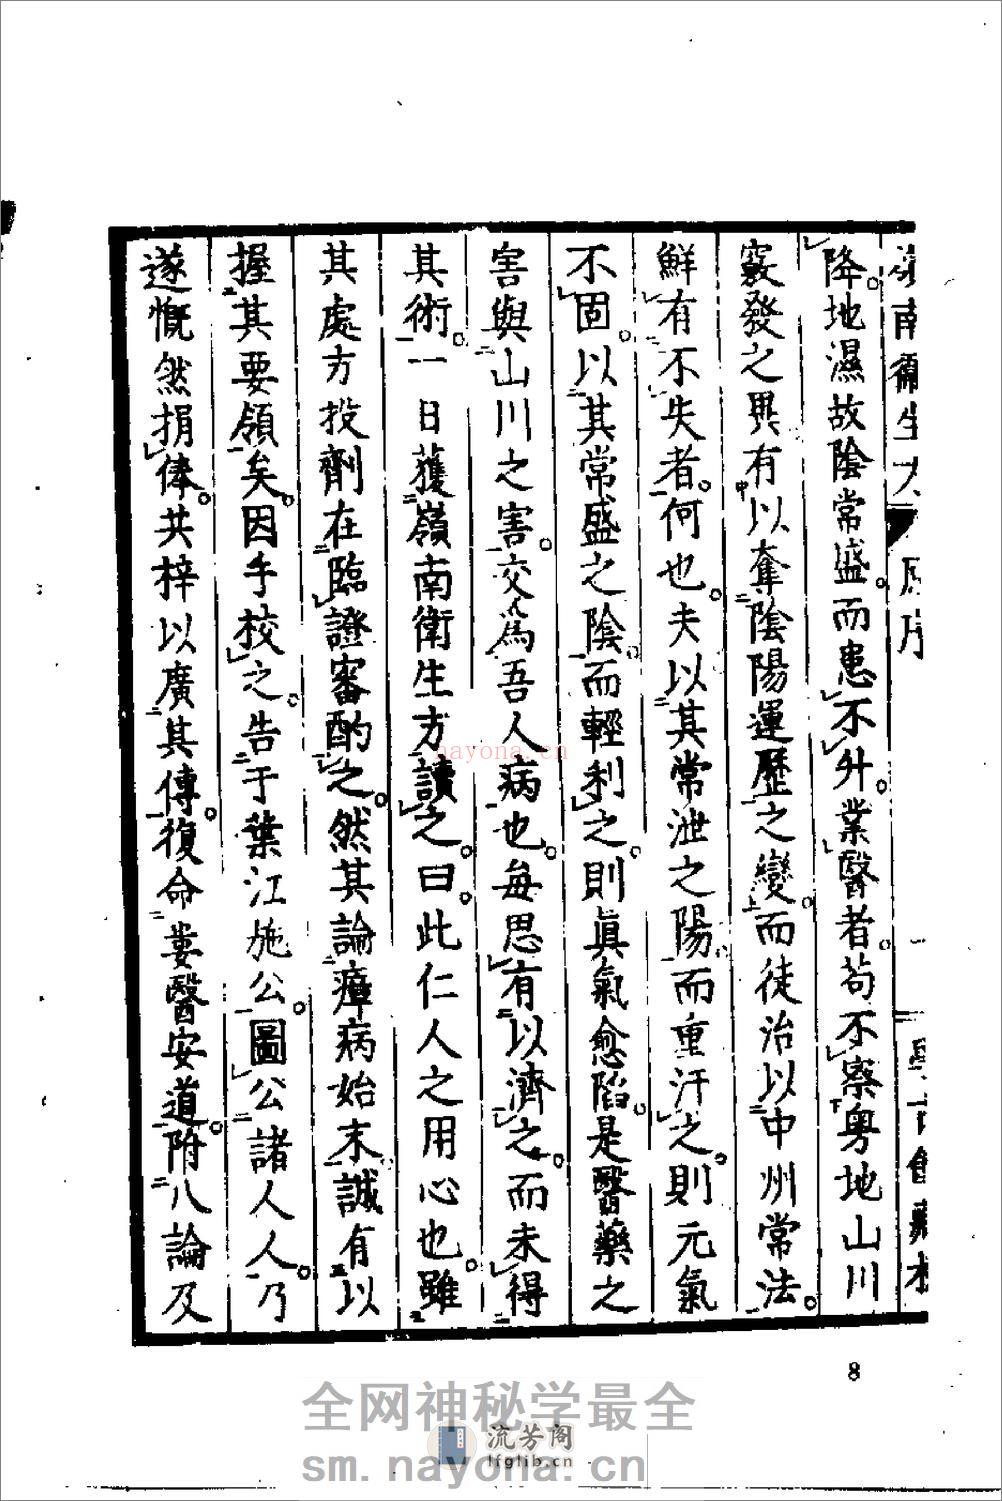 嶺南衞生方 原序
降地濕故陰常盛而患不升業醫者苟不察粤地山川
竅發之異有以奪陰陽運歷之變而徒治以中州常法
鮮有不失者何也夫以其常泄之陽而重汗之則元氣
不固以其常盛之陰而輕利之則眞氣愈陷是醫藥之
害與山川之害交爲吾人病也每思有以濟之而未得
其術一日獲嶺南衛生方讀之曰此仁人之用心也雖
其處方投劑在臨證審酌之然其論瘴病始末誠有以
握其要領矣因手校之告于葉江施公圖公諸人人乃
遂慨然捐俸共梓以廣其傳復命婁醫安道附八論及
8
nayona.cn
全网神秘学最全
流芳阁
lfglib.cn
sm.nayona.cn